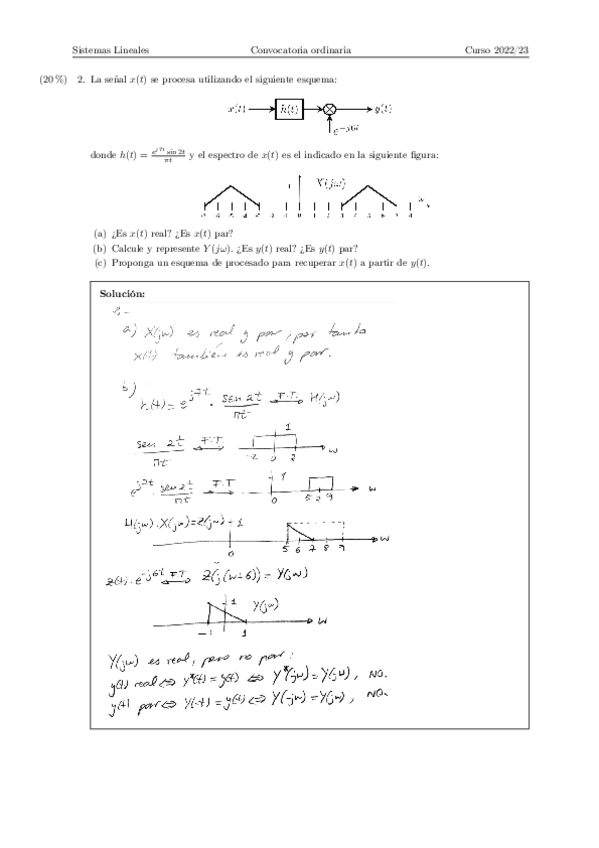 Sistemas Lineales Convocatoria ordinaria Curso 2022/23
(20 %) 2. La señal x(t) se procesa utilizando el siguiente esquema:
x(t) h(t) y(t)
e^{-j6t}
donde h(t) = e^{j7t} sin 2t / πt y el espectro de x(t) es el indicado en la siguiente figura:
(a) ¿Es x(t) real? ¿Es x(t) par?
(b) Calcule y represente Y(jω). ¿Es y(t) real? ¿Es y(t) par?
(c) Proponga un esquema de procesado para recuperar x(t) a partir de y(t).
Solución:
2.-
a) X(jω) es real y par, por tanto
x(t) también es real y par.
b)
h(t) = e^{j7t} · sen 2t / πt F.T. H(jω)
sen 2t / πt F.T. 1 -2 0 2 ω
e^{j7t} · sen 2t / πt F.T. 0 5 9 ω
H(jω) · X(jω) = Z(jω) 1 0 5 6 7 8 9 ω
z(t) · e^{-j6t} F.T. Z(j(ω+6)) = Y(jω)
1 Y(jω)
-1 1 ω
Y(jω) es real, pero no par:
y(t) real ⇔ y*(t) = y(t) ⇔ Y*(-jω) = Y(jω), NO.
y(t) par ⇔ y(-t) = y(t) ⇔ Y(-jω) = Y(jω), NO.